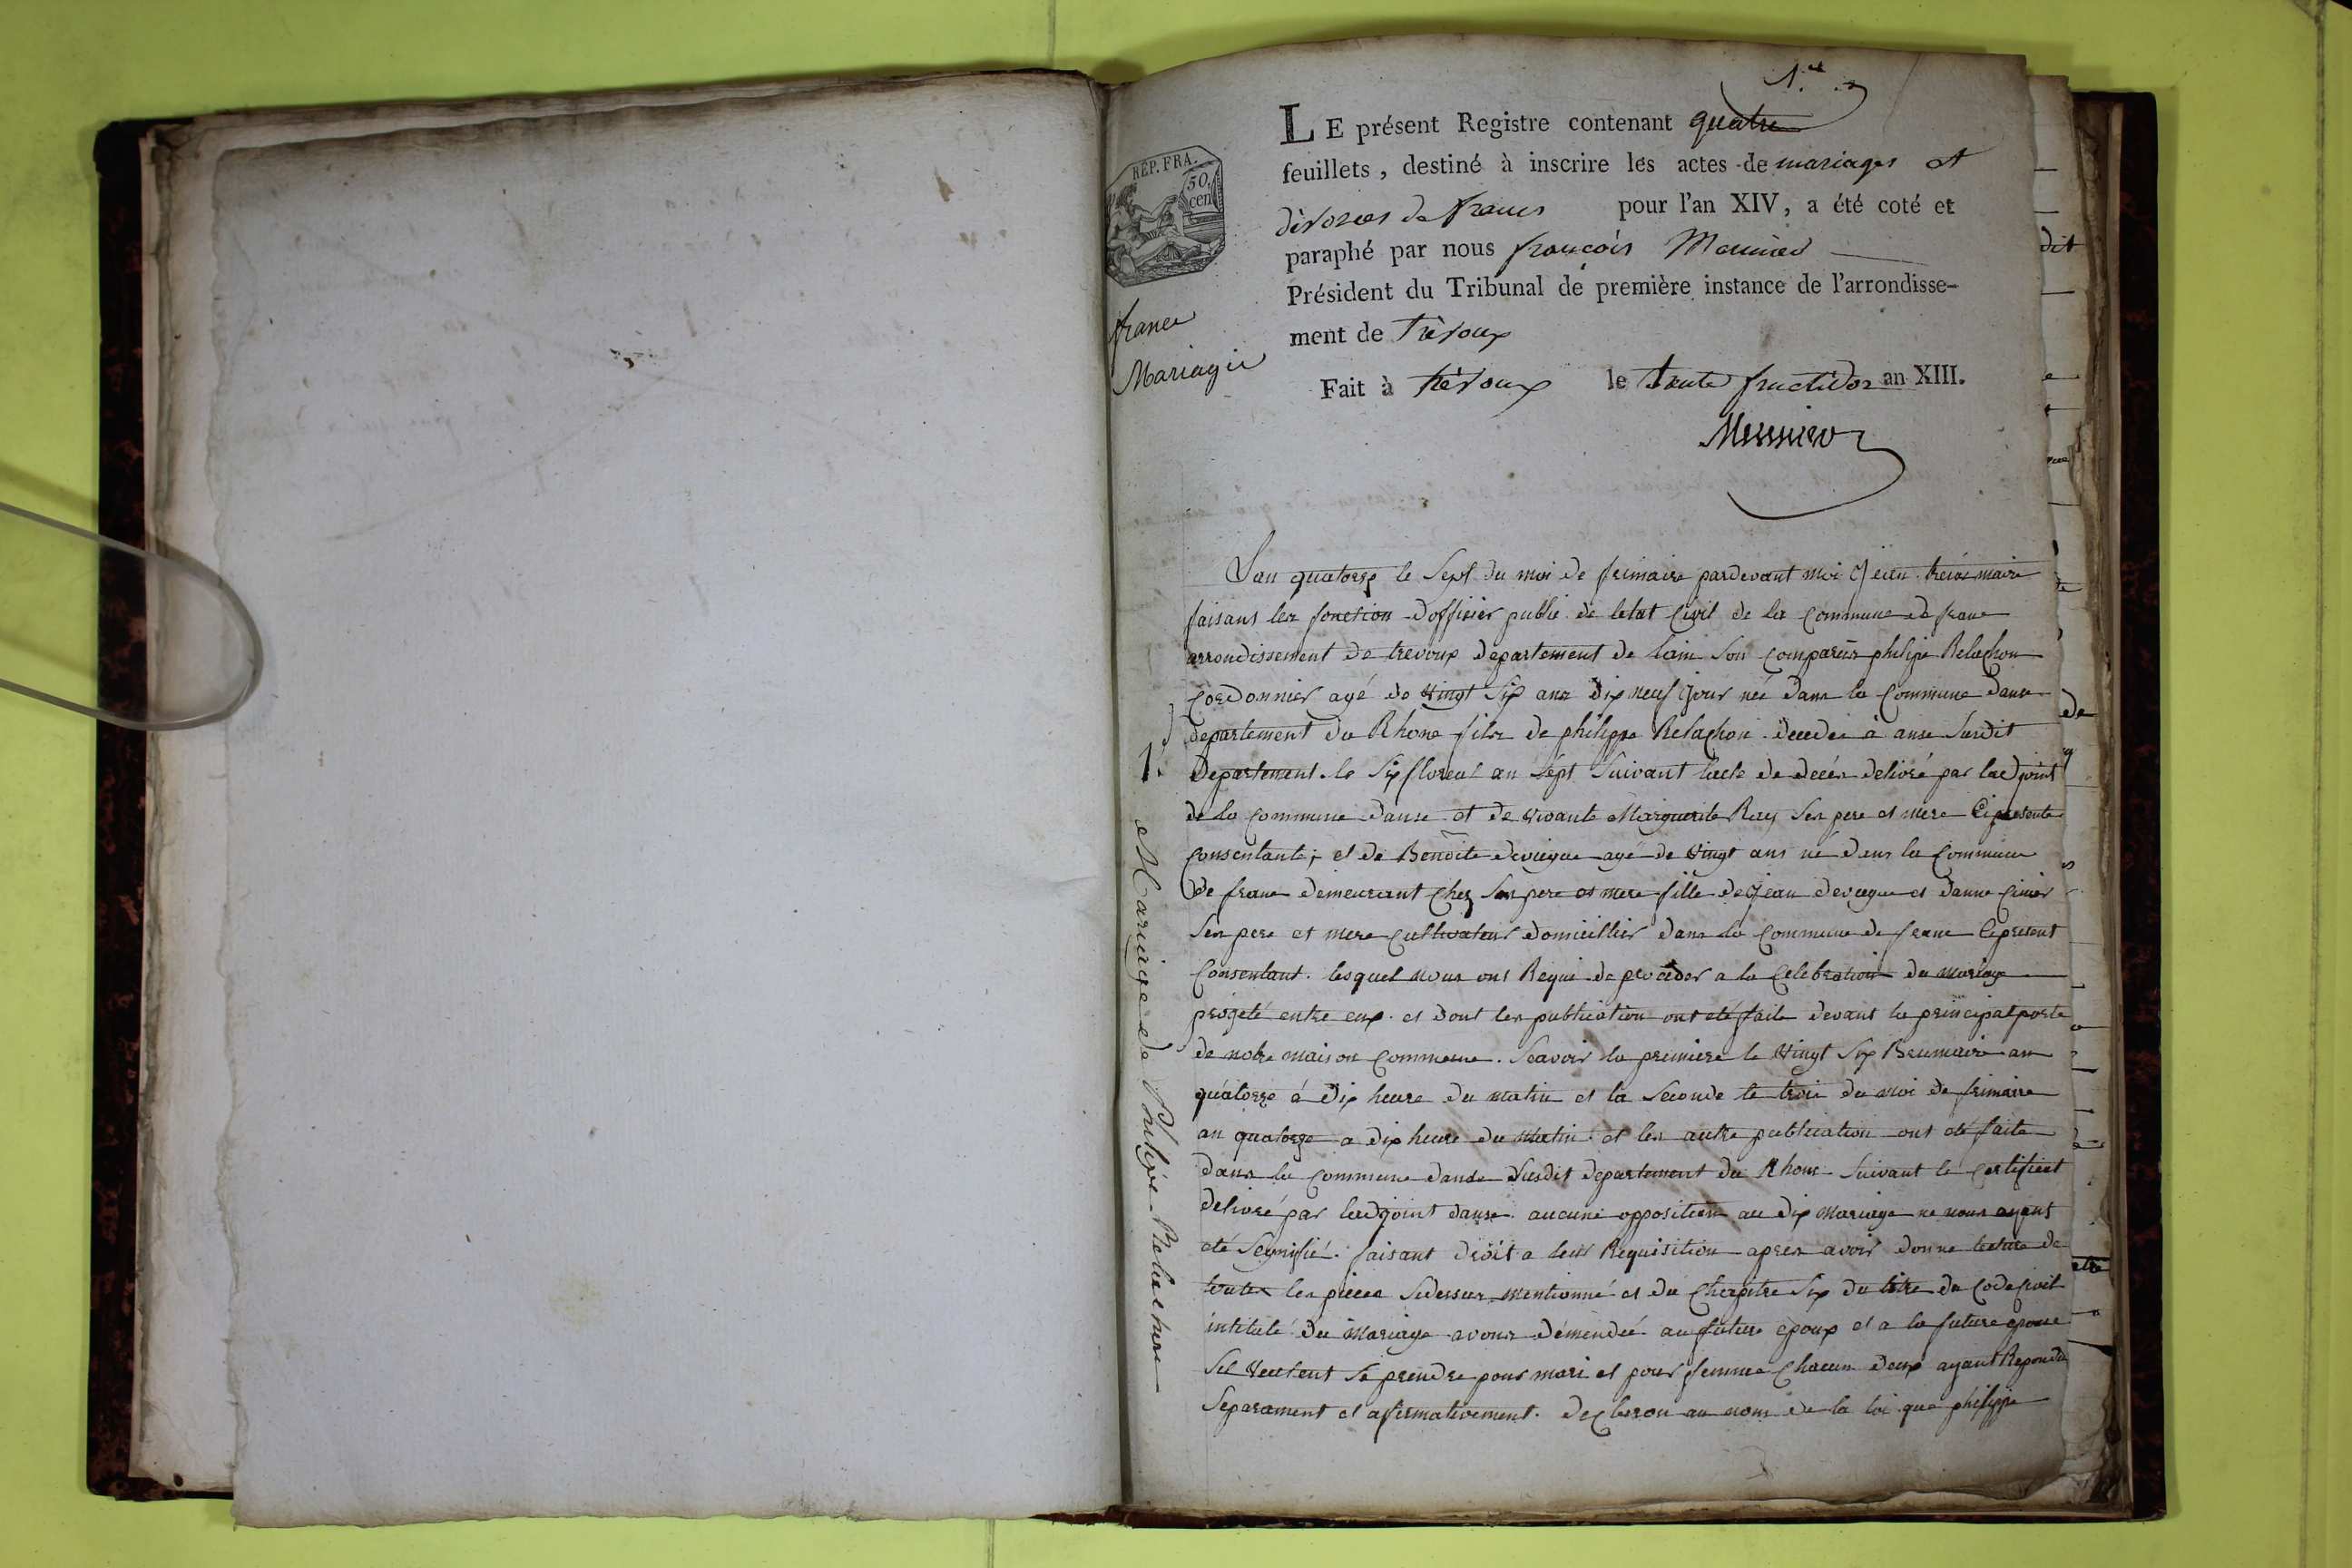 1.er
LE présent Registre contenant quatre
feuillets, destiné à inscrire les actes de mariages et
divorces de francs pour l'an XIV, a été coté et
paraphé par nous françois
Président du Tribunal de première instance de l'arrondisse-
ment de Trévoux
Fait à trévoux le trente fructidor an XIII.
RÉP. FRA.
50 cen
france
Mariage
Lan quatorze le Sept du moi de frimaire pardevant moi Jean maire
faisans les fonction dofficier public de letat Civil de la Commune de franc
arrondissement de trevoux departement de lain Son Comparus philipe Relachon
Cordonnier agé de vingt Six ans dix neuf jour née dans la Commune danse
departement du Rhone fils de philippe Relachon decedée à anse Surdit
Departement le Six floreal an Sept Suivant lacte de decés delivré par ladjoint
de la Commune danse et de vivante Marguerite Rey Ses pere et mere Ci presente
Consentante, et de Benoite devieque agé de vingt ans né dans la Commune
de franc demeurant Chez Ses pere et mere fille de Jean devieque et danne
Ses pere et mere Cultivateur domicillier dans la Commune de franc Ci present
Consentant. lesquel nous ont Requi de proceder a la Celebration du mariage
projeté entre eux. et dont les publication ont eté faite devant la principal porte
de notre maison Commune. Scavoir la premiere le vingt Six Brumaire an
quatorze à dix heure du matin et la Seconde le trois du moi de frimaire
an quatorze a dix heure du matin. et les autre publication ont eté faite
dans la Commune danse Susdit departement du Rhone Suivant le Certificat
delivré par ladjoint danse. aucune opposition au dix Mariage ne nous ayant
eté Segnifié. faisant droit a leur Requisition apres avoir donne lecture de
toutes les pieces Sidessus mentionné et du Chapitre Six du titre du Code Civil
intitulé du Mariage avons démendée au future epoux et a la future epouse
Sil veulent Se prendre pour mari et pour femme Chacun deux ayant Repondu
Séparament et afirmativement. declaron au nom de la loi que philippe
1.
Mariage de Philipe Relachon